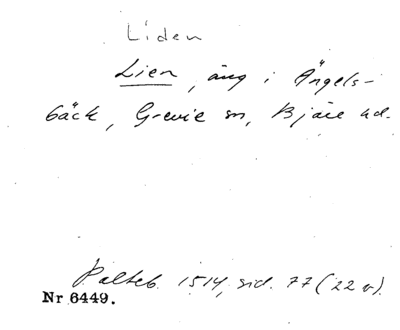 Liden
Lien, äng i Ängels-
bäck, Grevie sn, Bjäre hd.
Palteb. 1514, sid. 77 (22 v).
Nr 6449.